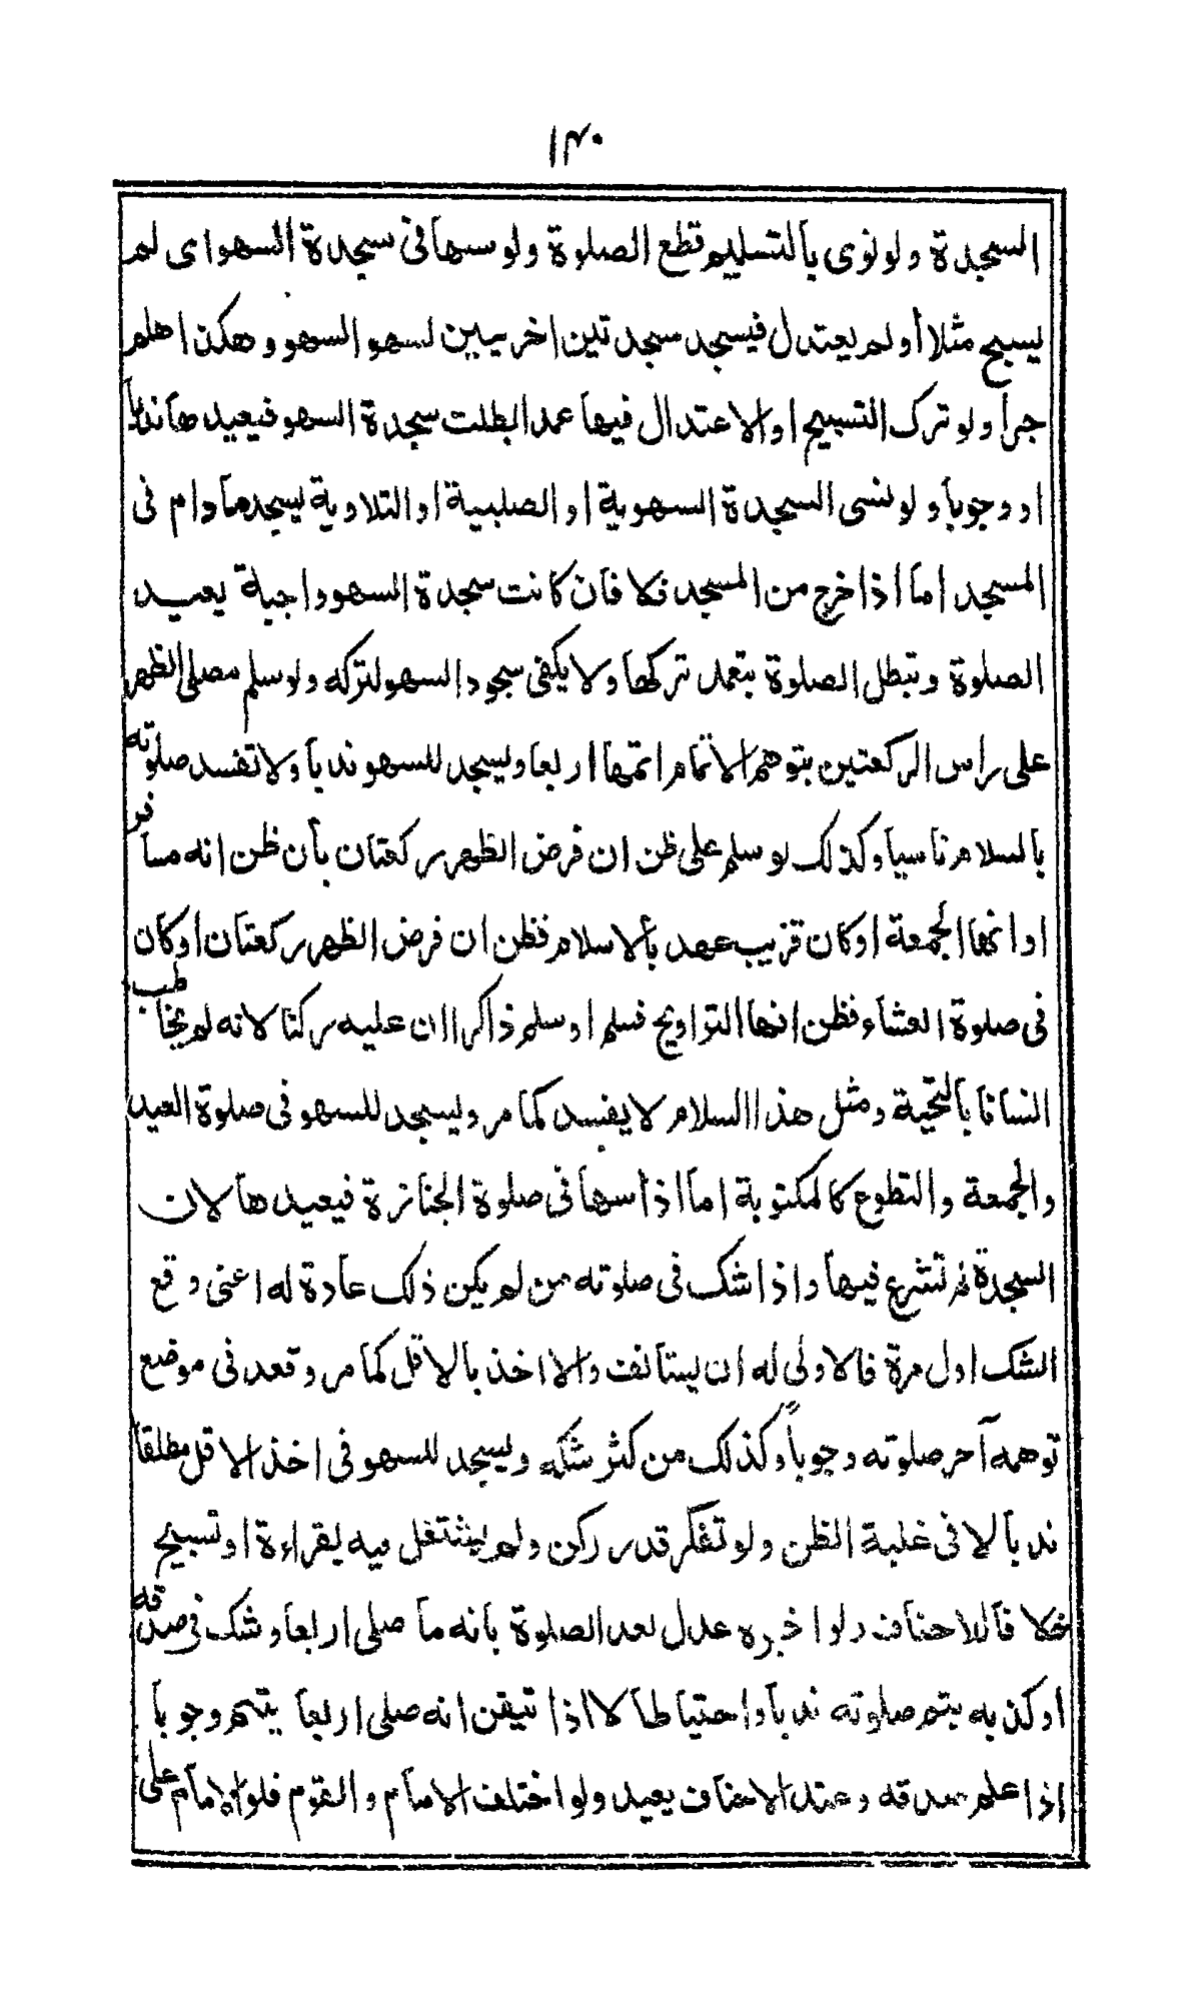 ١٣٠
السجدة ولو نوى بالتسليم قطع الصلوة ولو سها فى سجدة السهو اى لم
يسبح مثلا أو لم يعتدل فيسجد سجدتين اخريين لسهو السهو وهكذا هلم
جرا ولو ترك التسبيح او الاعتدال فيها عمدا بطلت سجدة السهو فيعيدها ندبا
او وجوبا ولو نسى السجدة السهوية او الصلبية او التلاوية يسجد ما دام فى
المسجد اما اذا خرج من المسجد فلا فان كانت سجدة السهو واجبة يعيد
الصلوة وتبطل الصلوة بتعمد تركها ولا يكفى سجود السهو لتركه ولو سلم مصلى الظهر
على راس الركعتين بتوهم الاتمام اتمها اربعا ويسجد للسهو ندبا ولا تفسد صلوته
بالسلام ناسيا وكذلك لو سلم على ظن ان فرض الظهر ركعتان بأن ظن انه مسافر
او انها الجمعة او كان قريب عهد بالاسلام فظن ان فرض الظهر ركعتان او كان
فى صلوة العشاء فظن انها التراويح فسلم او سلم ذاكرا ان عليه ركنا لانه لم يخاطب
انسانا بالتحية ومثل هذا السلام لا يفسد كما مر ويسجد للسهو فى صلوة العيد
والجمعة والتطوع كالمكتوبة اما اذا سها فى صلوة الجنازة فيعيدها لان
السجدة لم تشرع فيها واذا شك فى صلوته من لم يكن ذلك عادة له اعنى وقع
الشك اول مرة فالاولى له ان يستانف والا اخذ بالاقل كما مر وقعد فى موضع
توهمه آخر صلوته وجوباً وكذلك من كثر شكه ويسجد للسهو فى اخذ الاقل مطلقا
ندبا لا فى غلبة الظن ولو تفكر قدر ركن ولم يشتغل فيه بقراءة او تسبيح
خلافا للاحناف ولو اخبره عدل بعد الصلوة بانه ما صلى اربعا وشك فى صدقه
او كذبه يتم صلوته ندبا واحتياطا لا اذا تيقن انه صلى اربعا يتهم وجوبا
اذا علم صدقه وعند الاحناف يعيد ولو اختلف الامام والقوم فلو الامام على